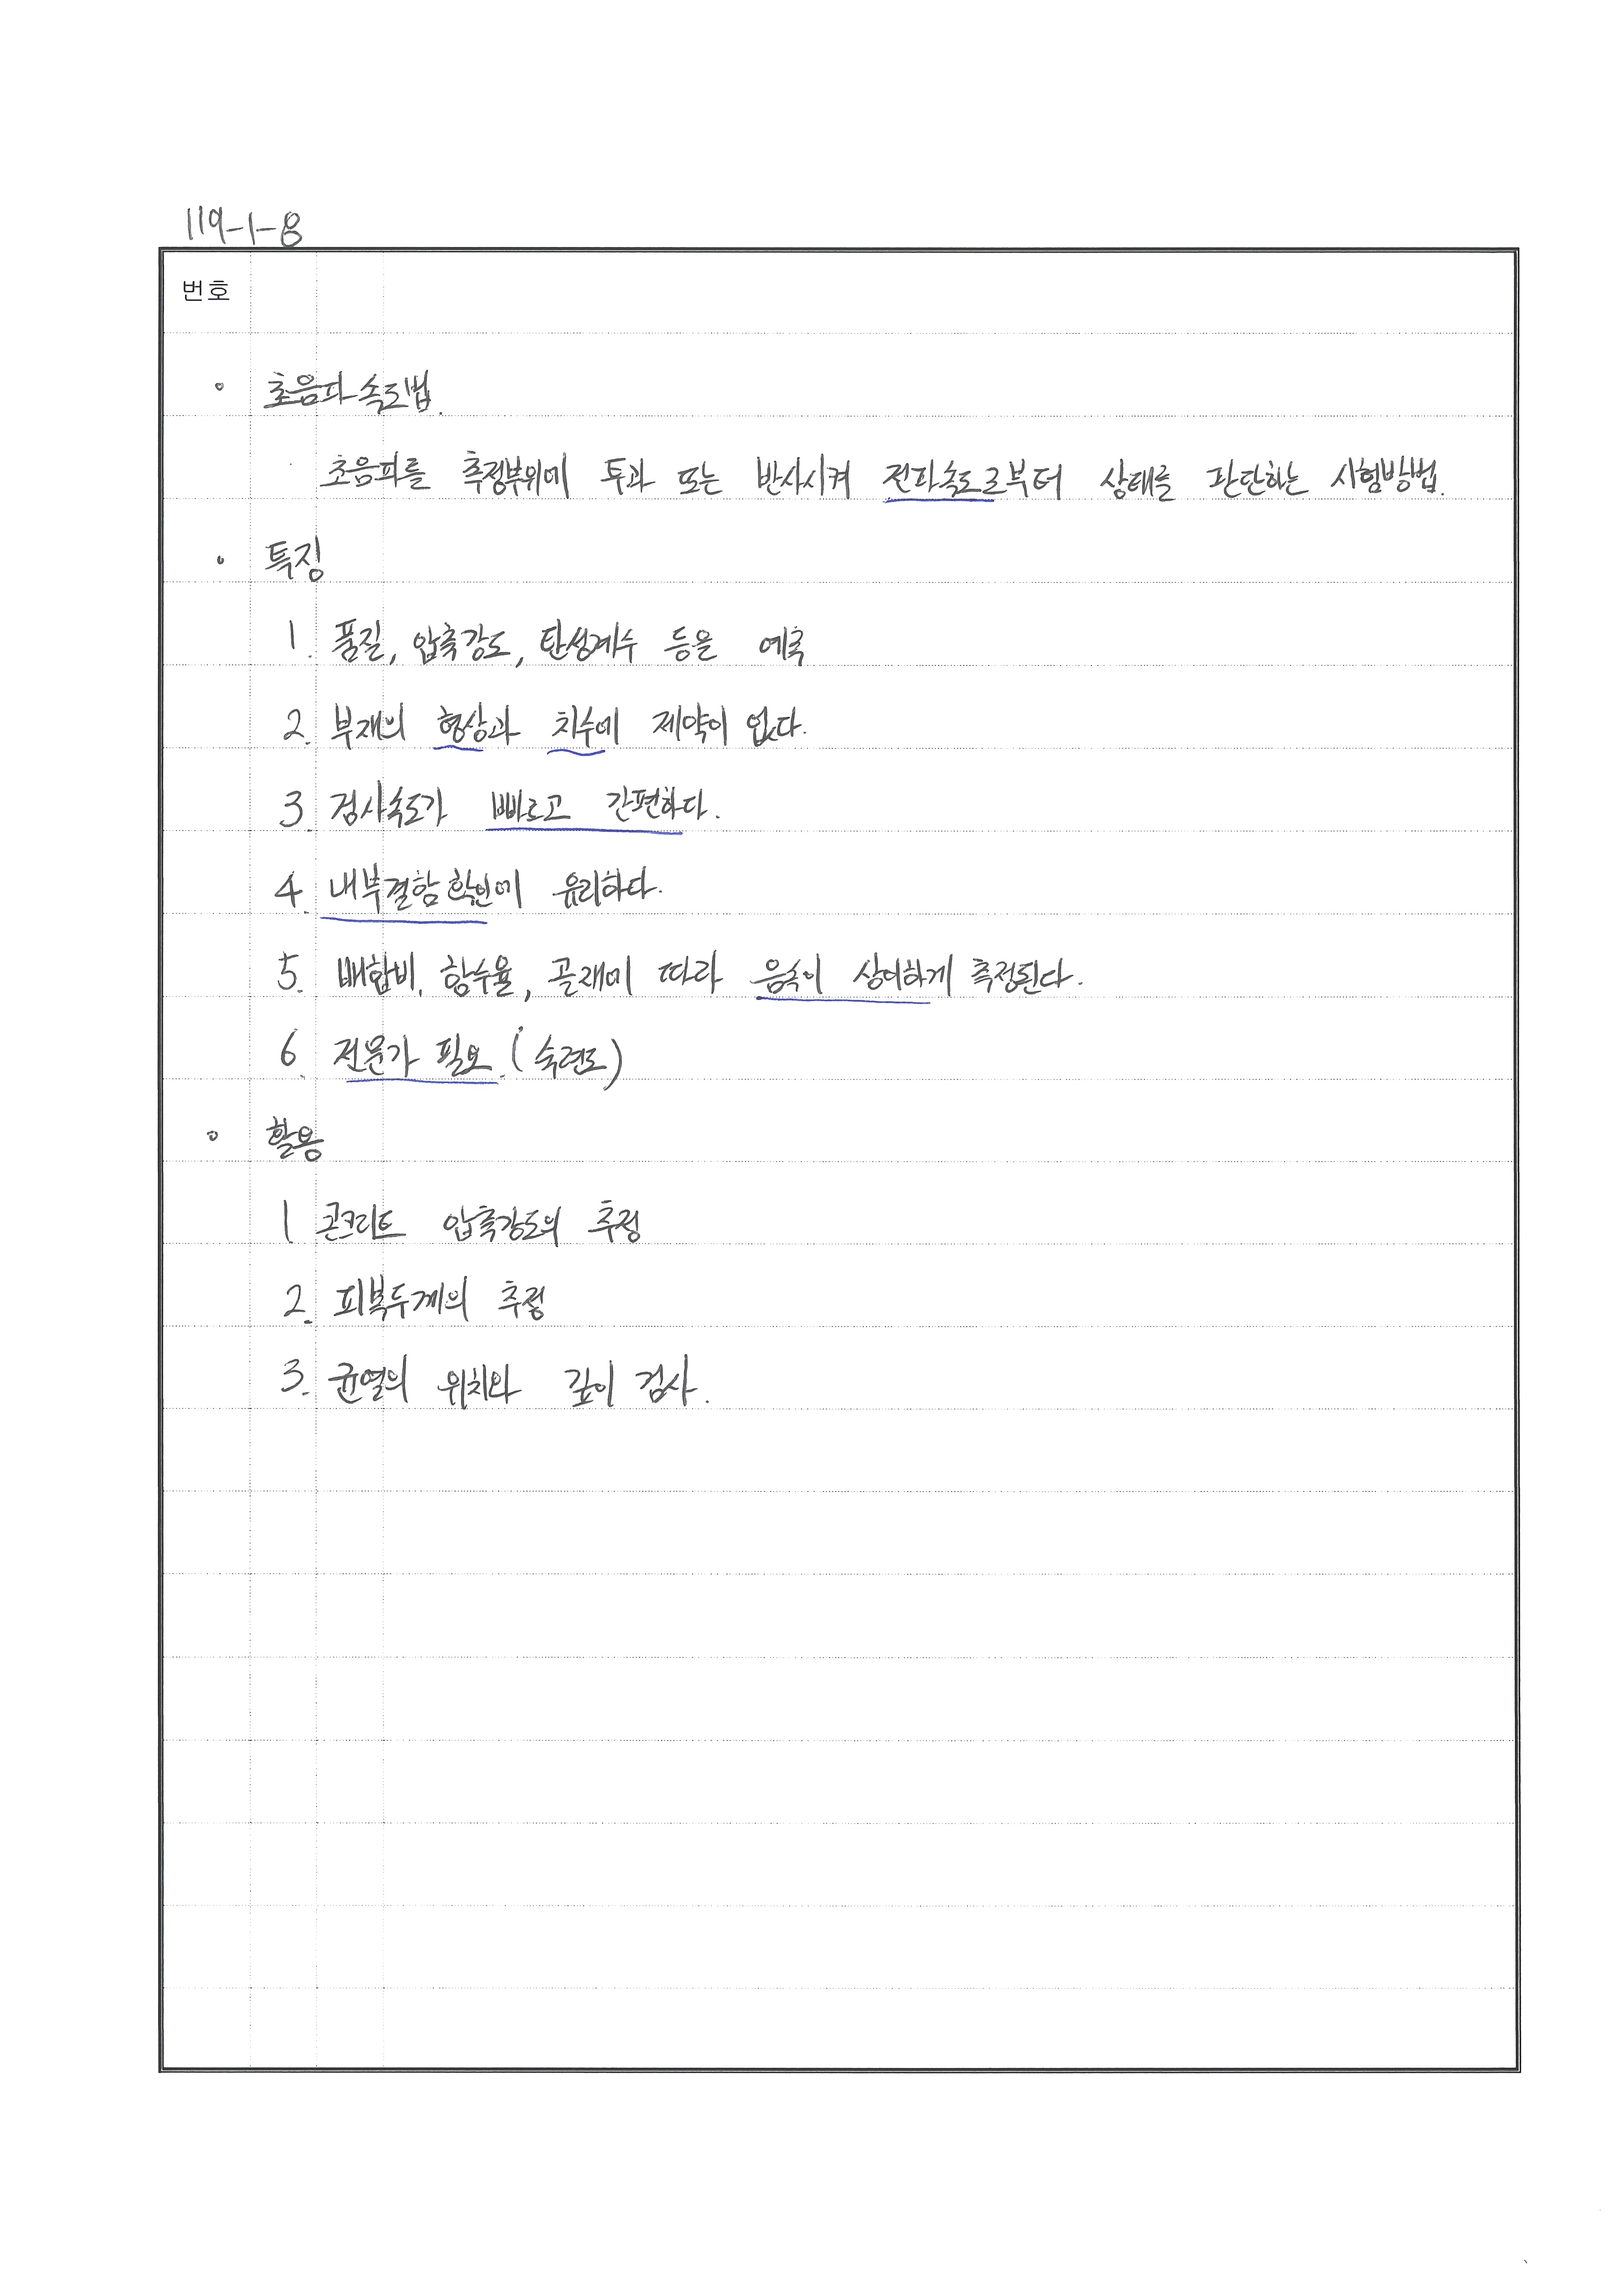 119-1-8
번호
◦ 초음파속도법.
초음파를 측정부위에 투과 또는 반사시켜 전파속도로부터 상태를 판단하는 시험방법.
◦ 특징
1. 품질, 압축강도, 탄성계수 등을 예측
2. 부재의 형상과 치수에 제약이 없다.
3. 검사속도가 빠르고 간편하다.
4. 내부결함 확인에 유리하다.
5. 배합비, 함수율, 골재에 따라 음속이 상이하게 측정된다.
6. 전문가 필요. (숙련도)
◦ 활용
1. 콘크리트 압축강도의 추정
2. 피복두께의 추정
3. 균열의 위치와 깊이 검사.